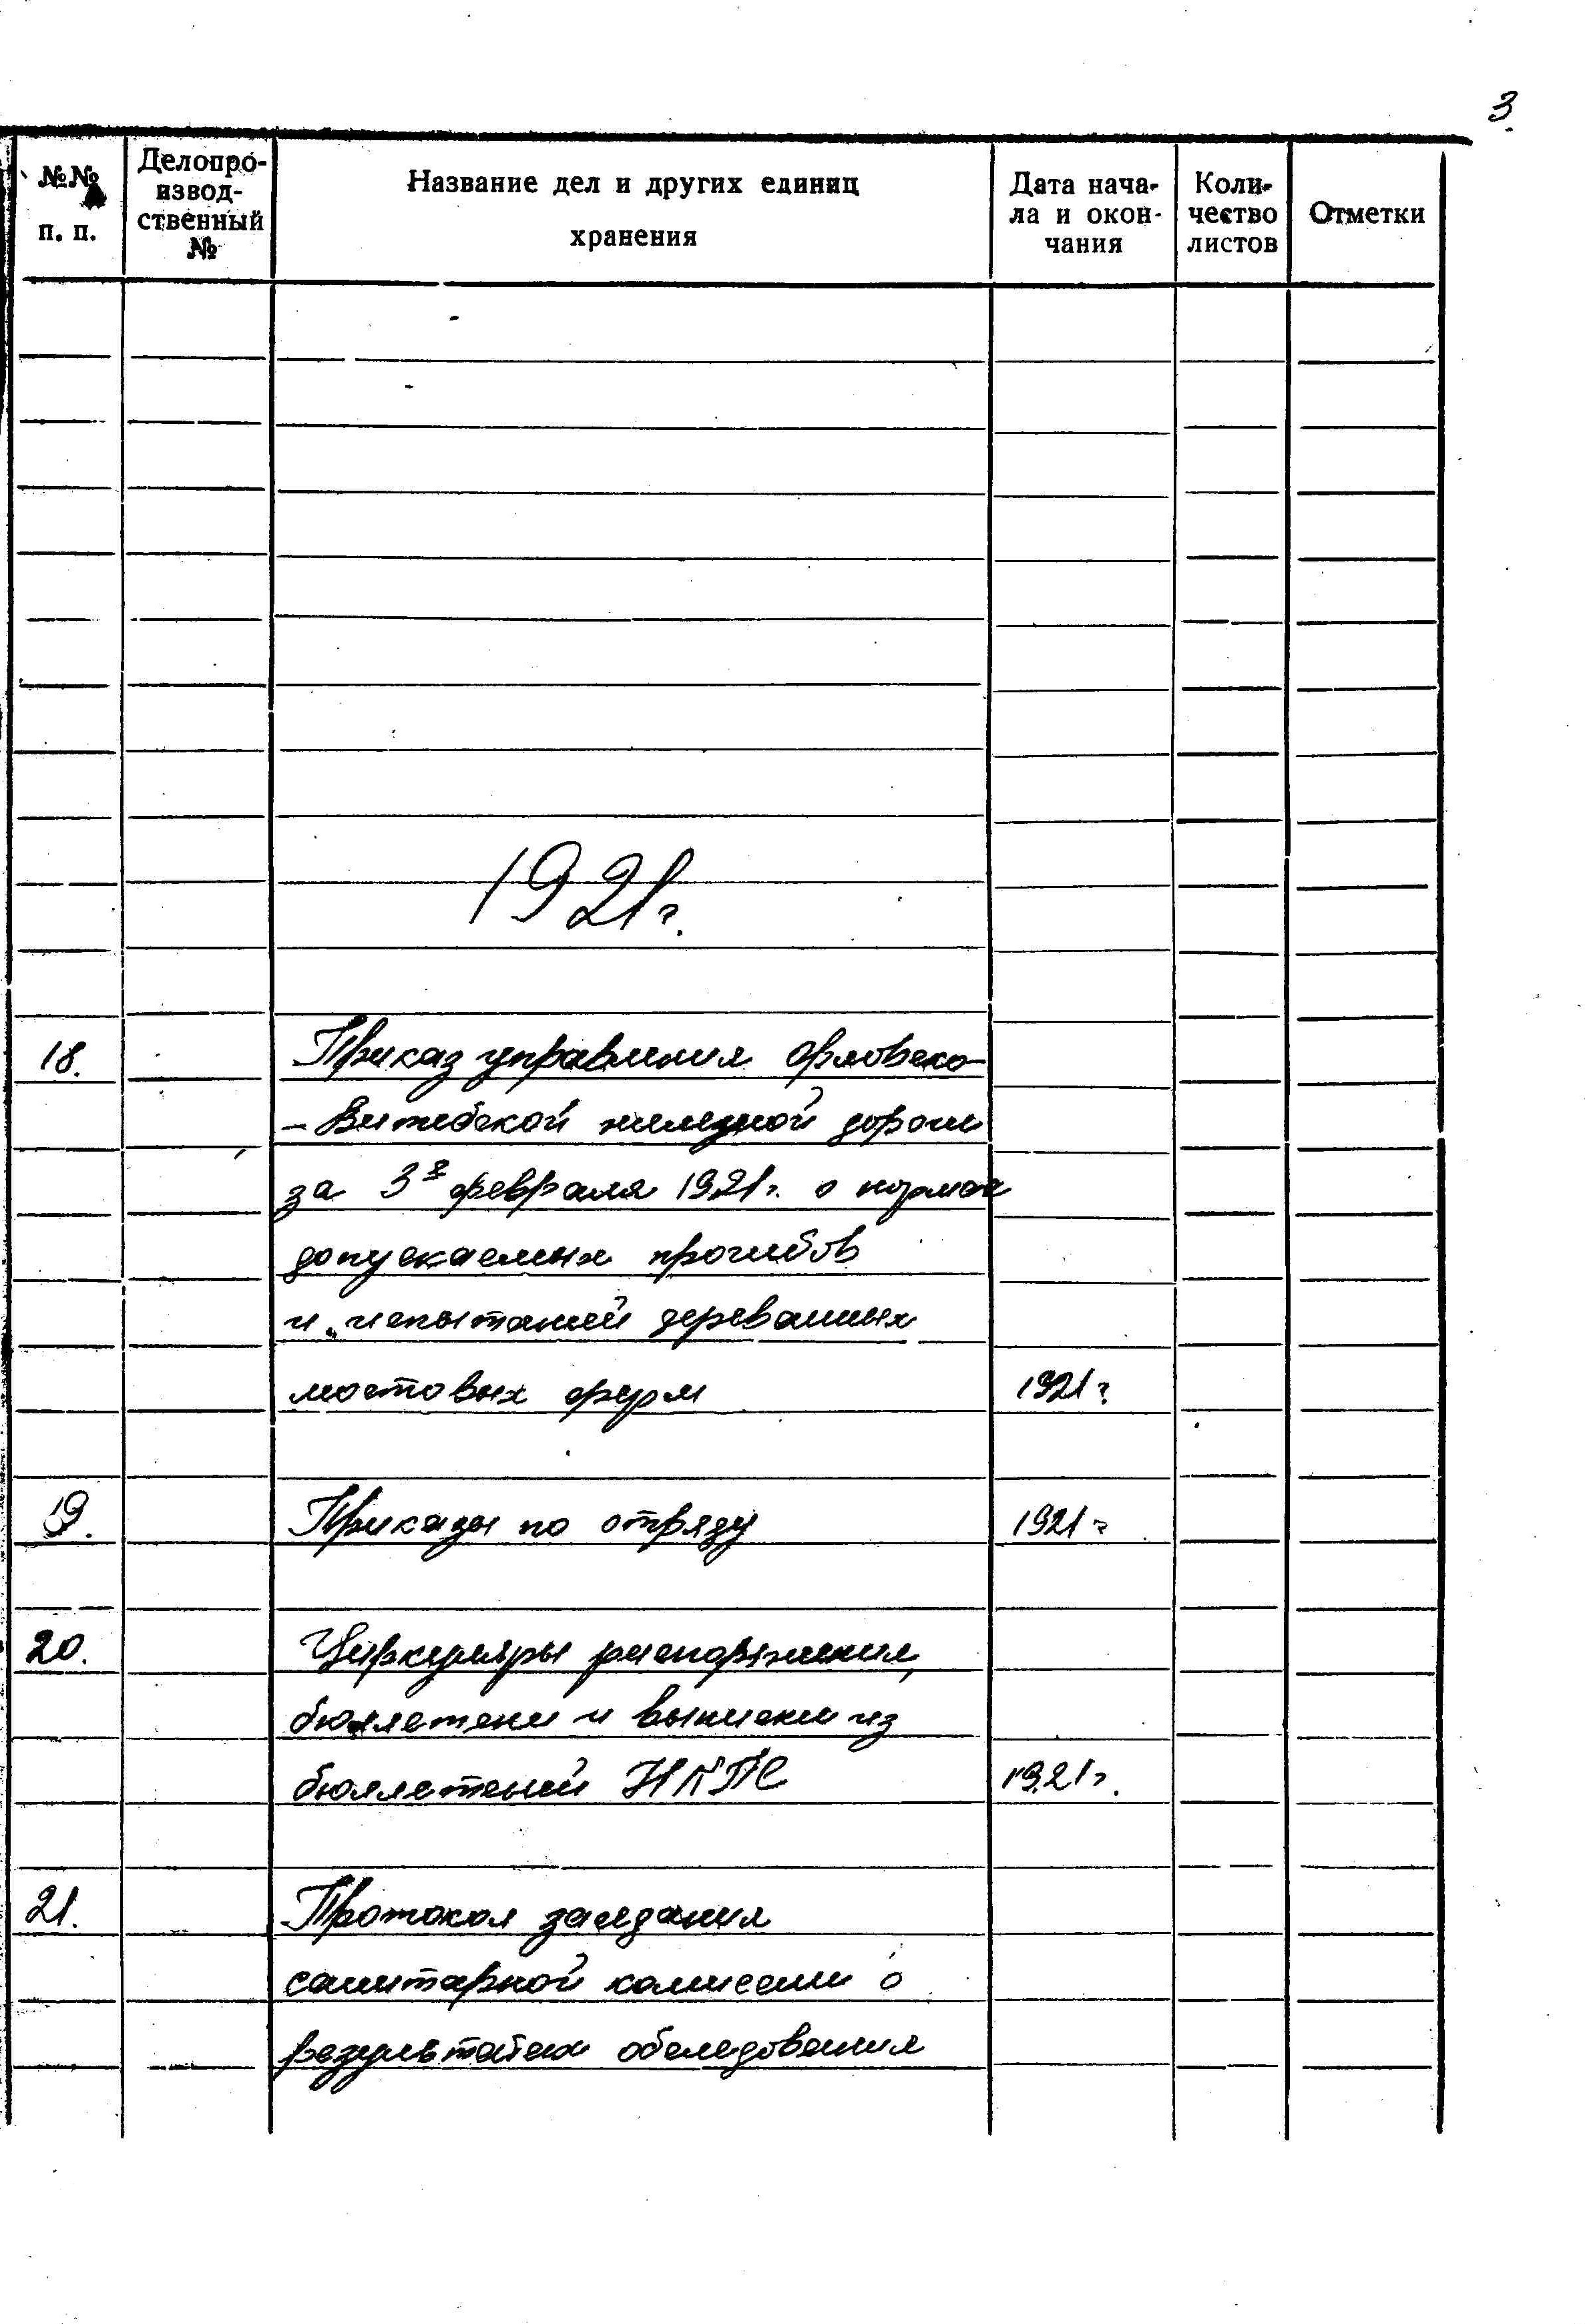 3.
№№ п. п.
Делопро-
извод-
ственный
№
Название дел и других единиц
хранения
Дата нача-
ла и окон-
чания
Коли-
чество
листов
Отметки
1921 г.
18. Приказ управления Орловско-
-Витебской железной дороги
за 3 февраля 1921 г. о нормах
допускаемых прогибов
и испытаний деревянных
мостовых ферм 1921 г.
19. Приказы по отряду 1921 г.
20. Циркуляры распоряжения,
бюллетени и выписки из
бюллетеней НКПС 1921 г.
21. Протокол заседания
санитарной комиссии о
результатах обследования